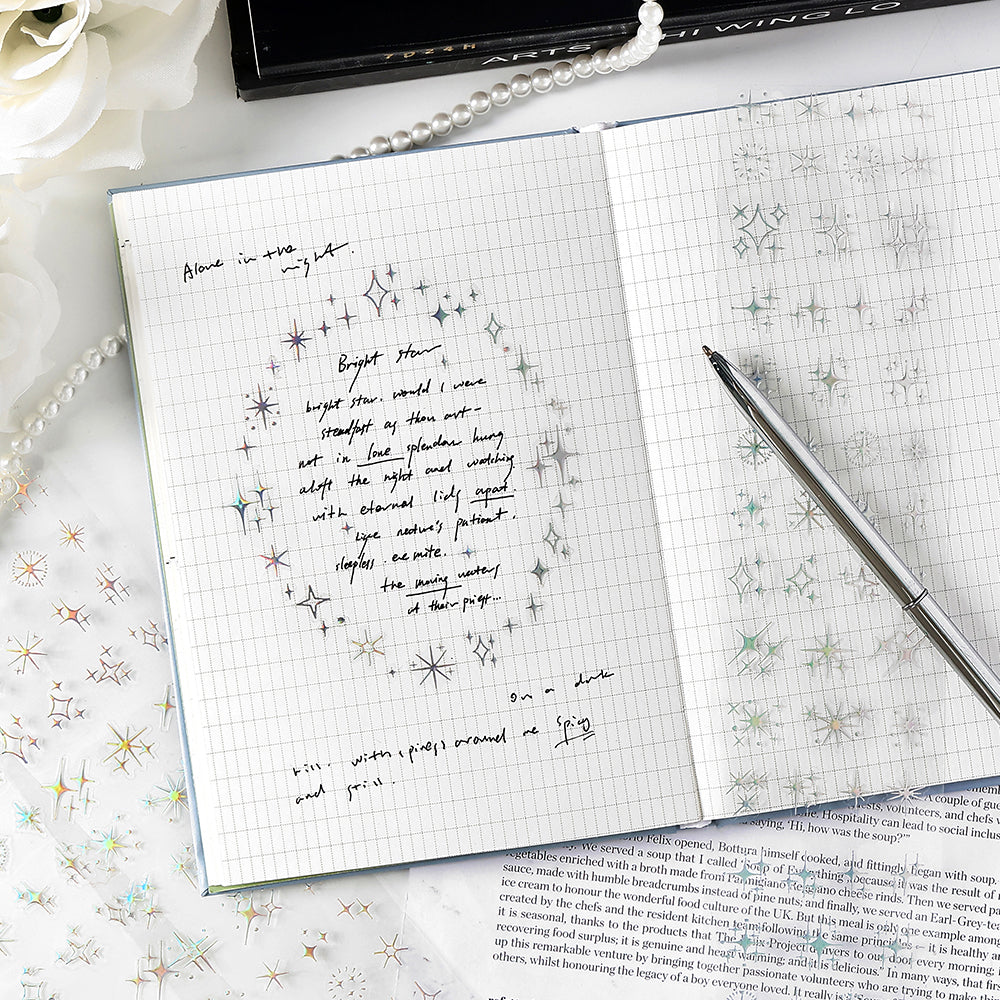 7024H
ARTS HI WING LO
Alone in the
night.
Bright star
bright star. would I were
steadfast as thou art-
not in lone splendour hung
aloft the night and watching
with eternal lids apart.
like nature's patient,
sleepless. eremite.
the moving waters
at their priest...
on a dark
hill. with pines around me Spicy
and still.
A couple of gue
ests, volunteers, and chefs
Hospitality can lead to social inclus
saying, 'Hi, how was the soup?'"
rio Felix opened, Bottura himself cooked, and fittingly, began with soup.
We served a soup that I called 'Soup of Everything' because it was the result of
egetables enriched with a broth made from Parmigiano Reggiano cheese rinds. Then we served pa
sauce, made with humble breadcrumbs instead of pine nuts; and finally, we served an Earl-Grey-tea
ice cream to honour the wonderful food culture of the UK. But this meal is only one example among
created by the chefs and the resident kitchen team following the same principles – it is healthy a
it is seasonal, thanks to the products that The Felix Project delivers to our door every morning;
recovering food surplus; it is genuine and heart warming; and it is delicious." In many ways, that fir
up this remarkable venture by bringing together passionate volunteers who are trying to make th
others, whilst honouring the legacy of a boy everyone loved. It really is